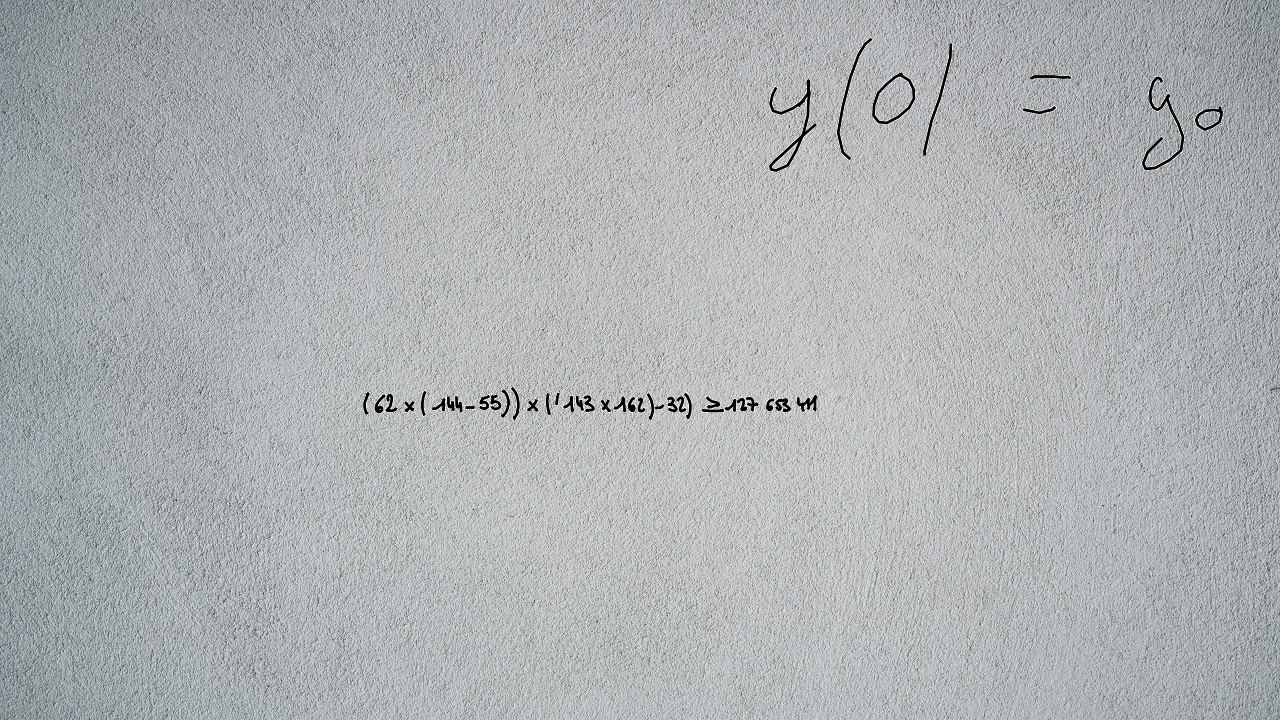 y(0) = y₀
(62 x (144-55)) x ((143 x 162)-32) ≥ 127 653 411